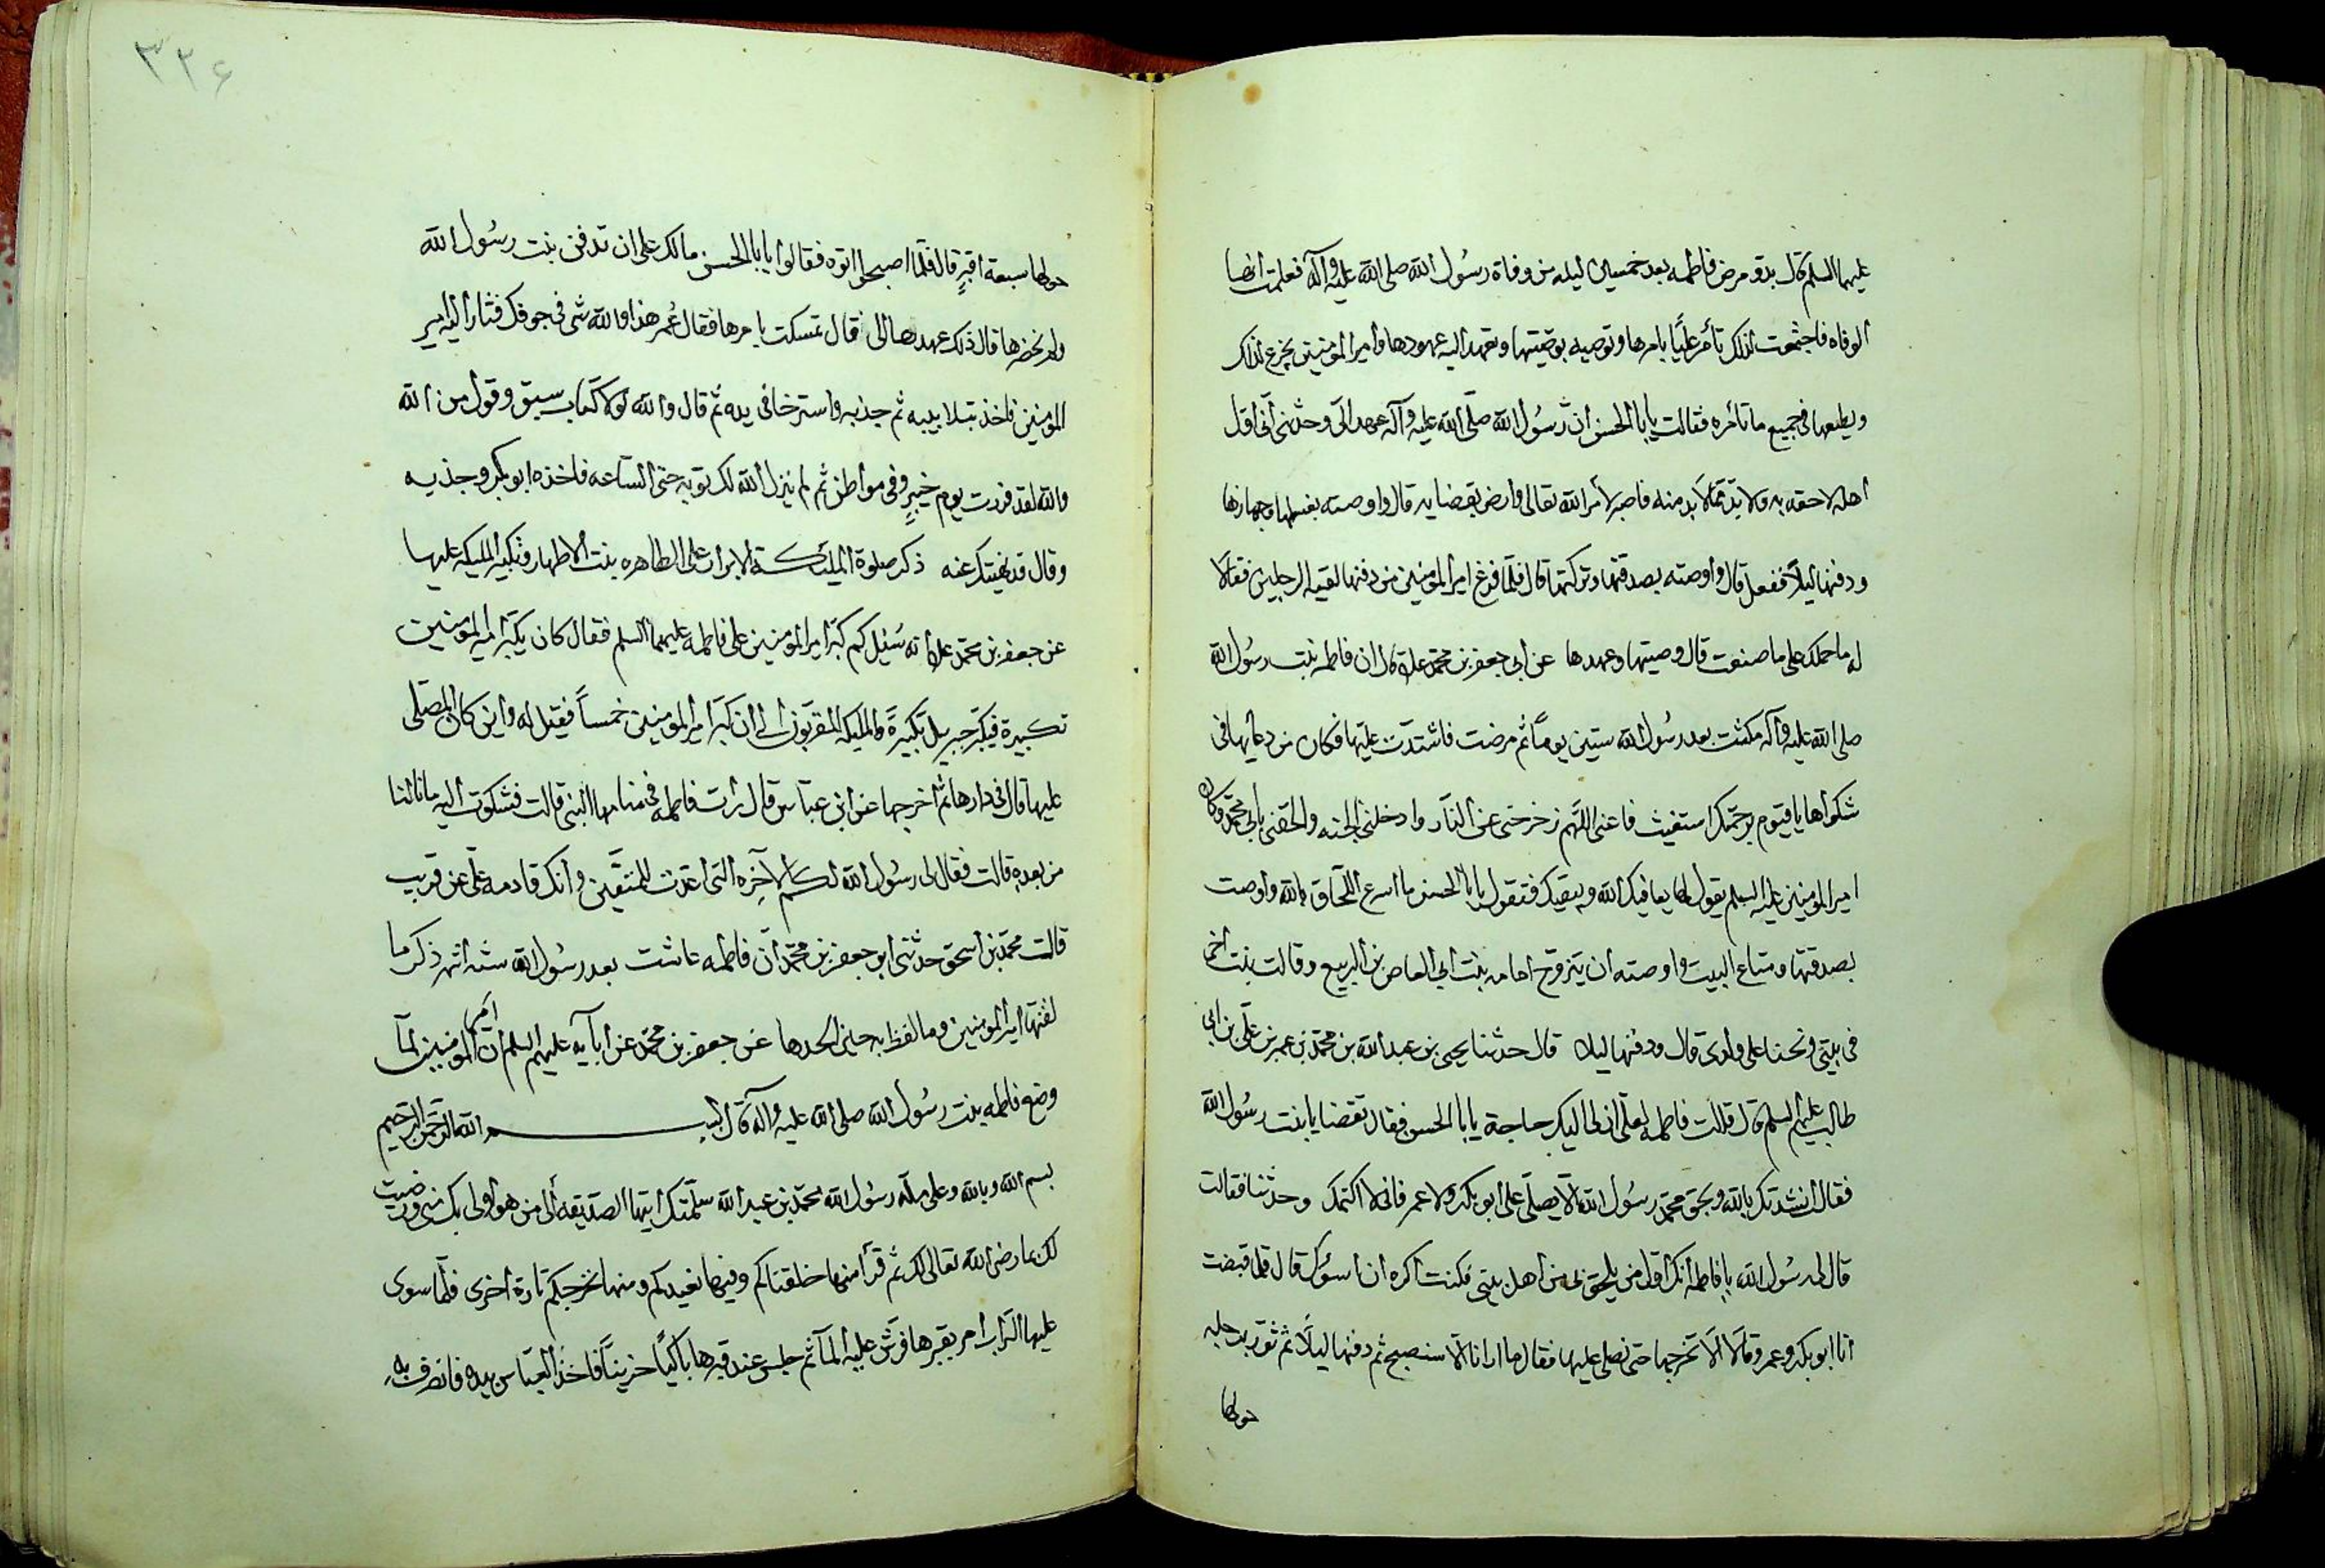 عليهما السلم قال بدو مرض فاطمه بعد خمسين ليله من وفاة رسول الله صلى الله عليه وآله فعلمت انها
الوفاه فاجتمعت لذلك تأمر عليًا بامرها وتوصيه بوصيتها وتعهد اليه عهودها وامير المؤمنين يجزع لذلك
ويطيعها في جميع ما تأمره فقالت يا با الحسن ان رسول الله صلى الله عليه وآله عهد الى وحدثنى أنى اول
اهله لاحقه به ولا بد مما لا بد منه فاصبر لأمر الله تعالى وارض بقضايه قال واوصته بغسلها وجهازها
ودفنها ليلاً ففعل قال واوصته بصدقتها وتركتها قال فلما فرغ امير المؤمنين من دفنها لقيه الرجلين فقالا
له ما حملك على ما صنعت قال وصيتها وعهدها عن ابى جعفر بن محمد قال ان فاطمه بنت رسول الله
صلى الله عليه وآله مكثت بعد رسول الله ستين يوماً ثم مرضت فاشتدت عليها فكان من دعايها فى
شكواها يا قيوم برحمتك استغيث فاغثنى اللهم زحزحنى عن النار وادخلنى الجنه والحقنى بابى محمد وكان
امير المؤمنين عليه السلم يقول لها يعافيك الله ويبقيك فتقول يا با الحسن ما اسرع اللحاق بالله واوصت
بصدقتها ومتاع البيت واوصته ان يتزوج امامه بنت ابى العاص بن الربيع وقالت بنت اختى
فى بيتى وتحننا على ولدى قال ودفنها ليلا قال حدثنا يحيى بن عبد الله بن محمد بن عمر بن على بن ابى
طالب عليهم السلم قال قالت فاطمه لعلى ان لى اليك حاجة يا با الحسن فقال تقضا يا بنت رسول الله
فقال انشدتك بالله وبحق محمد رسول الله الّا يصلى على ابو بكر ولا عمر فانى لا اكتمك وحدثنا فقالت
قال لى رسول الله يا فاطمه انك اول من يلحق بى من اهل بيتى فكنت اكره ان اسؤك قال فلما قبضت
اتا ابو بكر وعمر وقالا الا تخرجها حتى نصلى عليها فقال ما ارانا الا سنصبح ثم دفنها ليلاً ثم
حولها
٣٢۶
حولها سبعة اقبرٍ قال فلما اصبحوا اتوه فقالوا يا با الحسن ما لك على ان تدفن بنت رسول الله
ولم نحضرها قال ذلك عهدها الى قال تمسكت بامرها فقال عُمر هذا والله شى فى جوفك فثار اليه امير
المؤمنين فاخذ بتلابيبه ثم جذبه واسترخا فى يده ثم قال والله لولا كتاب سبق وقول من الله
والله لقد فررت يوم خيبرٍ وفى مواطن ثم لم ينزل الله لك توبه حتى الساعه فاخذه ابو بكر وجذبه
وقال قد نهيتك عنه ذكر صلوة الملئكة الابرار على الطاهره بنت الاطهار وتكبير المليكه عليها
عن جعفر بن محمد انه سُئيل كم كبّر امير المؤمنين على فاطمه عليهما السلم فقال كان يكبّر امير المؤمنين
تكبيرة فيكبّر جبريل تكبيرةً والمليكه المقربون الى ان كبّر امير المؤمنين خمساً فقيل له واين كان المصلى
عليها قال فى دارها ثم اخرجها عن ابن عباس قال رات فاطمه فى منامها النبى قالت فشكوت اليه ما نالنا
من بعده قالت فقال لى رسول الله لكم الآخره التى اعدت للمتقين وانك قادمه علىّ عن قريب
قالت محمد بن اسحق حدثنى ابو جعفر بن محمد أن فاطمه عاشت بعد رسول الله ستة اشهر ذكر ما
لقنها امير المؤمنين وما لفظ به حين الحدها عن جعفر بن محمد عن ابآيه عليهم السلم ان امير المؤمنين لمآ
وضع فاطمه بنت رسول الله صلى الله عليه واله قال بسم الله الرحمن الرحيم
بسم الله وبالله وعلى ملة رسول الله محمد بن عبد الله سلمتك ايتها الصديقه ألى من هو اولى بك منى ورضيت
لك بما رضى الله تعالى لك ثم قرأ منها خلقناكم وفيها نعيدكم ومنها نخرجكم تارة اخرى فلما سوى
عليها التراب امر بقبرها فرش عليه المآ ثم جلس عند قبرها باكياً حزيناً فاخذ العباس بيده فانصرف به